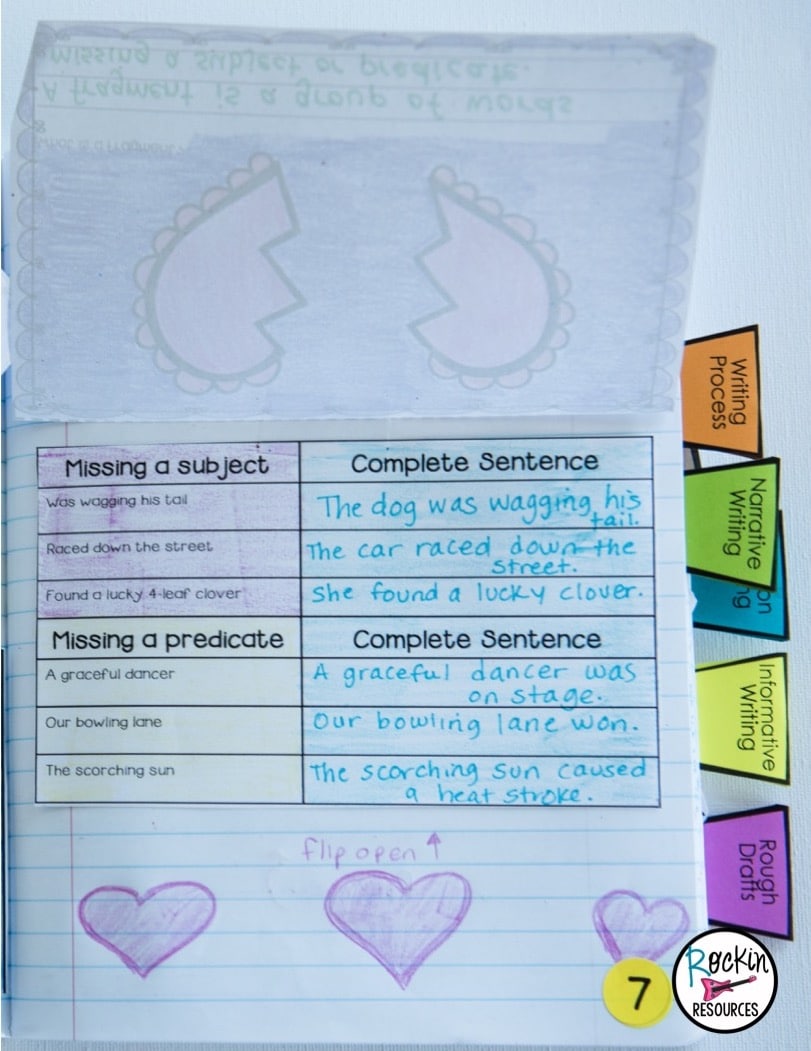 What is a Fragment?
A fragment is a group of words
missing a subject or predicate.
Missing a subject
Complete Sentence
Was wagging his tail
The dog was wagging his
tail.
Raced down the street
The car raced down the
street.
Found a lucky 4-leaf clover
She found a lucky clover.
Missing a predicate
Complete Sentence
A graceful dancer
A graceful dancer was
on stage.
Our bowling lane
Our bowling lane won.
The scorching sun
The scorching sun caused
a heat stroke.
flip open ↑
Writing
Process
Narrative
Writing
on
ng
Informative
Writing
Rough
Drafts
7
Rockin
RESOURCES